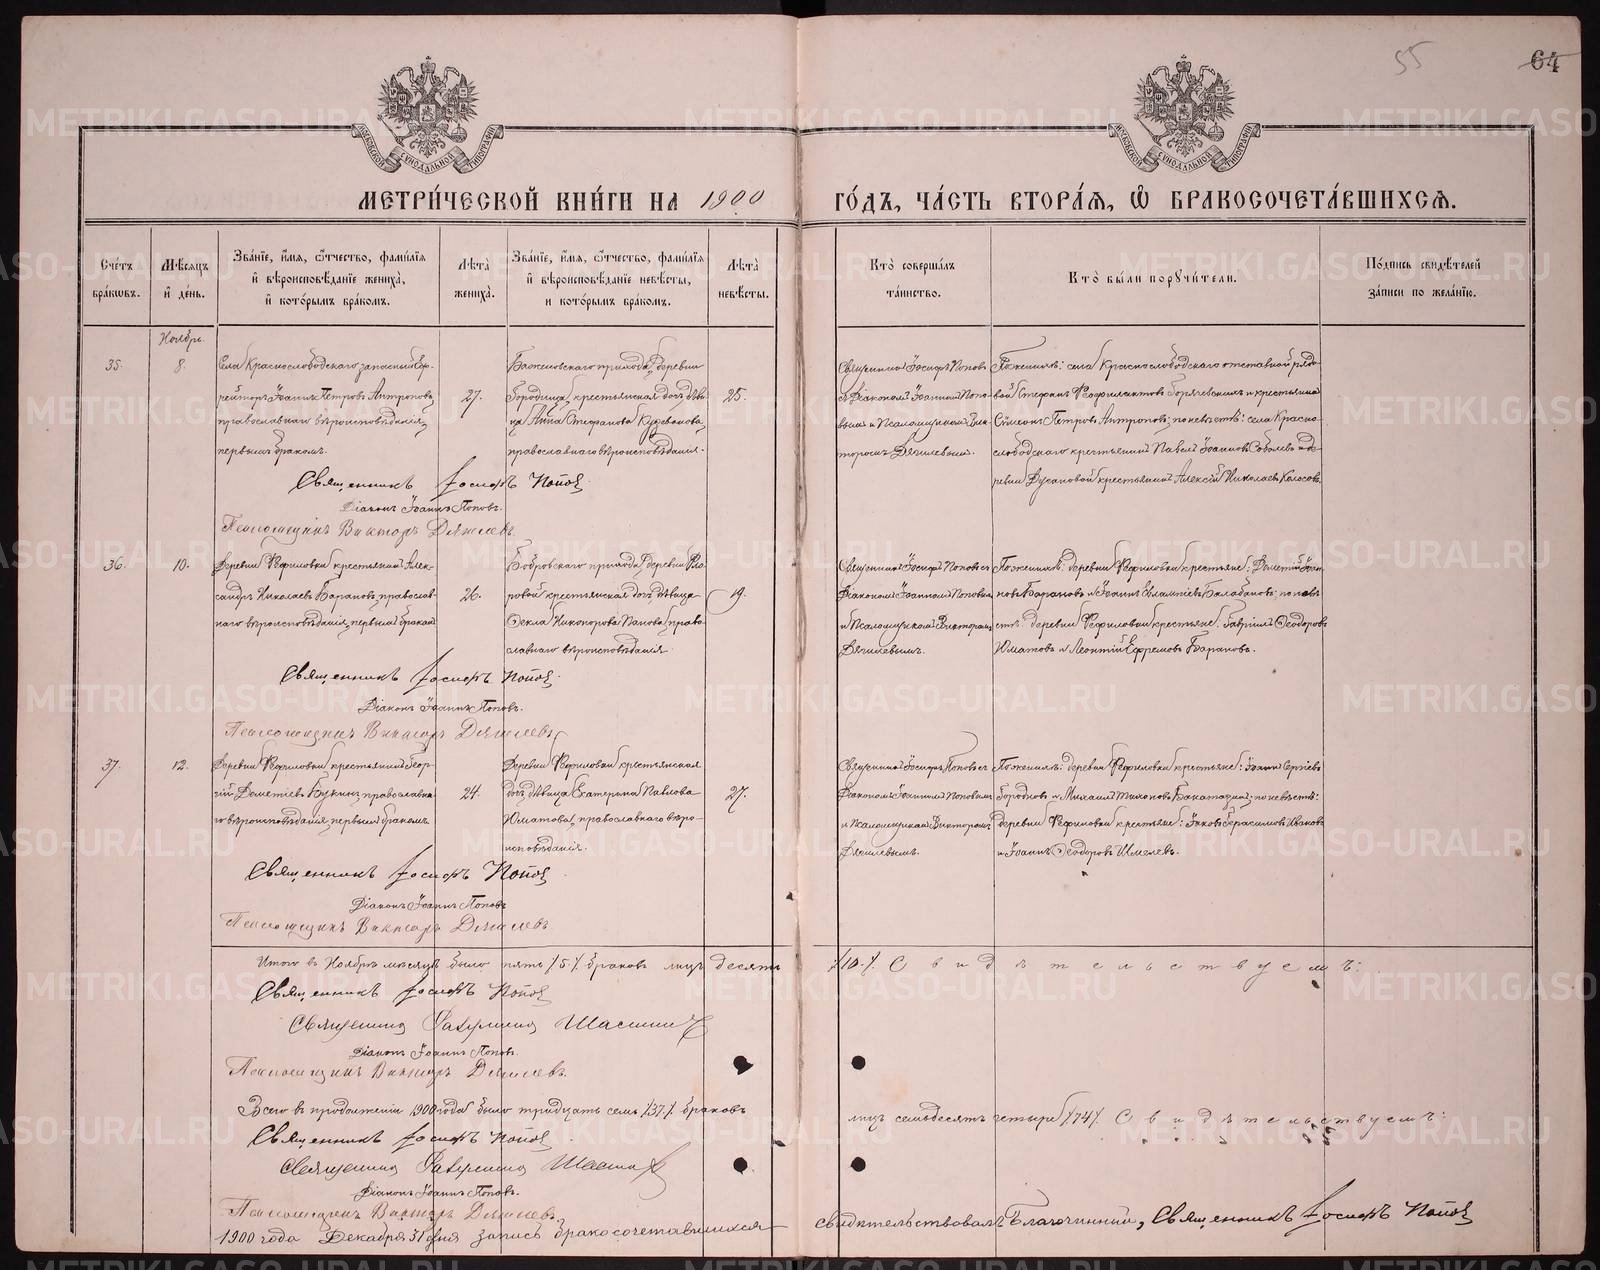 55
64
МЕТРИ́ЧЕСКОЙ КНИ́ГИ НА 1900 ГО́ДЪ, ЧА́СТЬ ВТОРА́Я, Ѡ БРАКОСОЧЕТА́ВШИХСЯ.
Сче́тъ бра́ковъ.
Мѣ́сяцъ и де́нь.
Зва́нїе, и́мя, ѻ́тчество, фами́лїя и вѣроисповѣ́данїе жениха́, и кото́рымъ бра́комъ.
Лѣта̀ жениха̀.
Зва́нїе, и́мя, ѻ́тчество, фами́лїя и вѣроисповѣ́данїе невѣ́сты, и кото́рымъ бра́комъ.
Лѣта̀ невѣ́сты.
Кто̀ соверша́лъ та́инство.
Кто̀ бы́ли поручи́тели.
По́дпись свидѣ́телей за́писи по жела́нїю.
Ноябрь.
35.
8.
Села Краснослободскаго запасный Еф-
рейторъ Іоаннъ Петровъ Антроповъ,
православнаго вѣроисповѣданія,
первымъ бракомъ.
27.
Баженовскаго прихода, деревни
крестьянская дочь дѣви-
ца Анна Стефанова
православнаго вѣроисповѣданія.
25.
Священникъ Іосифъ Поповъ
съ Діакономъ Іоанномъ Попо-
вымъ и Псаломщикомъ Вик-
торомъ Дягилевымъ.
По женихѣ: села Краснослободскаго отставной рядо-
вой Стефанъ Феофилактовъ Горячевскихъ и крестьянинъ
Симеонъ Петровъ Антроповъ; по невѣстѣ: села Красно-
слободскаго крестьянинъ Павелъ Іоанновъ Соболевъ и де-
ревни крестьянинъ Алексѣй Николаевъ Колосовъ.
Священникъ Іосифъ Поповъ
Діаконъ Іоаннъ Поповъ.
Псаломщикъ Викторъ Дягилевъ.
36.
10.
Деревни Ѳефиловки крестьянинъ Алек-
сандръ Николаевъ Барановъ, православ-
наго вѣроисповѣданія, первымъ бракомъ
26.
Бобровскаго прихода, деревни
крестьянская дочь дѣвица
Ѳекла Никонорова Панова, право-
славнаго вѣроисповѣданія.
19.
Священникъ Іосифъ Поповъ съ
Діакономъ Іоанномъ Поповымъ
и Псаломщикомъ Викторомъ
Дягилевымъ.
По женихѣ: деревни Ѳефиловки крестьяне: Дометій Іоан-
новъ Барановъ и Іоаннъ Евлампіевъ Балабановъ; по невѣ-
стѣ: деревни Ѳефиловки крестьяне: Гавріилъ Ѳеодоровъ
Юматовъ и Леонтій Ефремовъ Барановъ.
Священникъ Іосифъ Поповъ
Діаконъ Іоаннъ Поповъ.
Псаломщикъ Викторъ Дягилевъ
37.
12.
Деревни Ѳефиловки крестьянинъ Геор-
гій Дометіевъ Букинъ, православна-
го вѣроисповѣданія, первымъ бракомъ.
24.
Деревни Ѳефиловки крестьянская
дочь дѣвица Екатерина Павлова
Юматова, православнаго вѣро-
исповѣданія.
27.
Священникъ Іосифъ Поповъ съ
Діакономъ Іоанномъ Поповымъ
и Псаломщикомъ Викторомъ
Дягилевымъ.
По женихѣ: деревни Ѳефиловки крестьяне: Іоаннъ Сергіевъ
Бородинъ и Михаилъ Тихоновъ по невѣстѣ:
деревни Ѳефиловки крестьяне: Іаковъ Герасимовъ Ивановъ
и Іоаннъ Ѳеодоровъ Шмелевъ.
Священникъ Іосифъ Поповъ
Діаконъ Іоаннъ Поповъ
Псаломщикъ Викторъ Дягилевъ
Итого въ Ноябрѣ мѣсяцѣ было пять /5/ браковъ лицъ десять /10./ Свидѣтельствуемъ:
Священникъ Іосифъ Поповъ
Священникъ
Діаконъ Іоаннъ Поповъ.
Псаломщикъ Викторъ Дягилевъ.
Всего въ продолженіи 1900 года было тридцать семь /37/ браковъ лицъ семьдесятъ четыре /74/. Свидѣтельствуемъ:
Священникъ Іосифъ Поповъ
Священникъ
Діаконъ Іоаннъ Поповъ.
Псаломщикъ Викторъ Дягилевъ.
1900 года Декабря 31 дня запись бракосочетавшихся свидѣтельствовалъ Благочинный, Священникъ Іосифъ Поповъ
METRIKI.GASO-URAL.RU